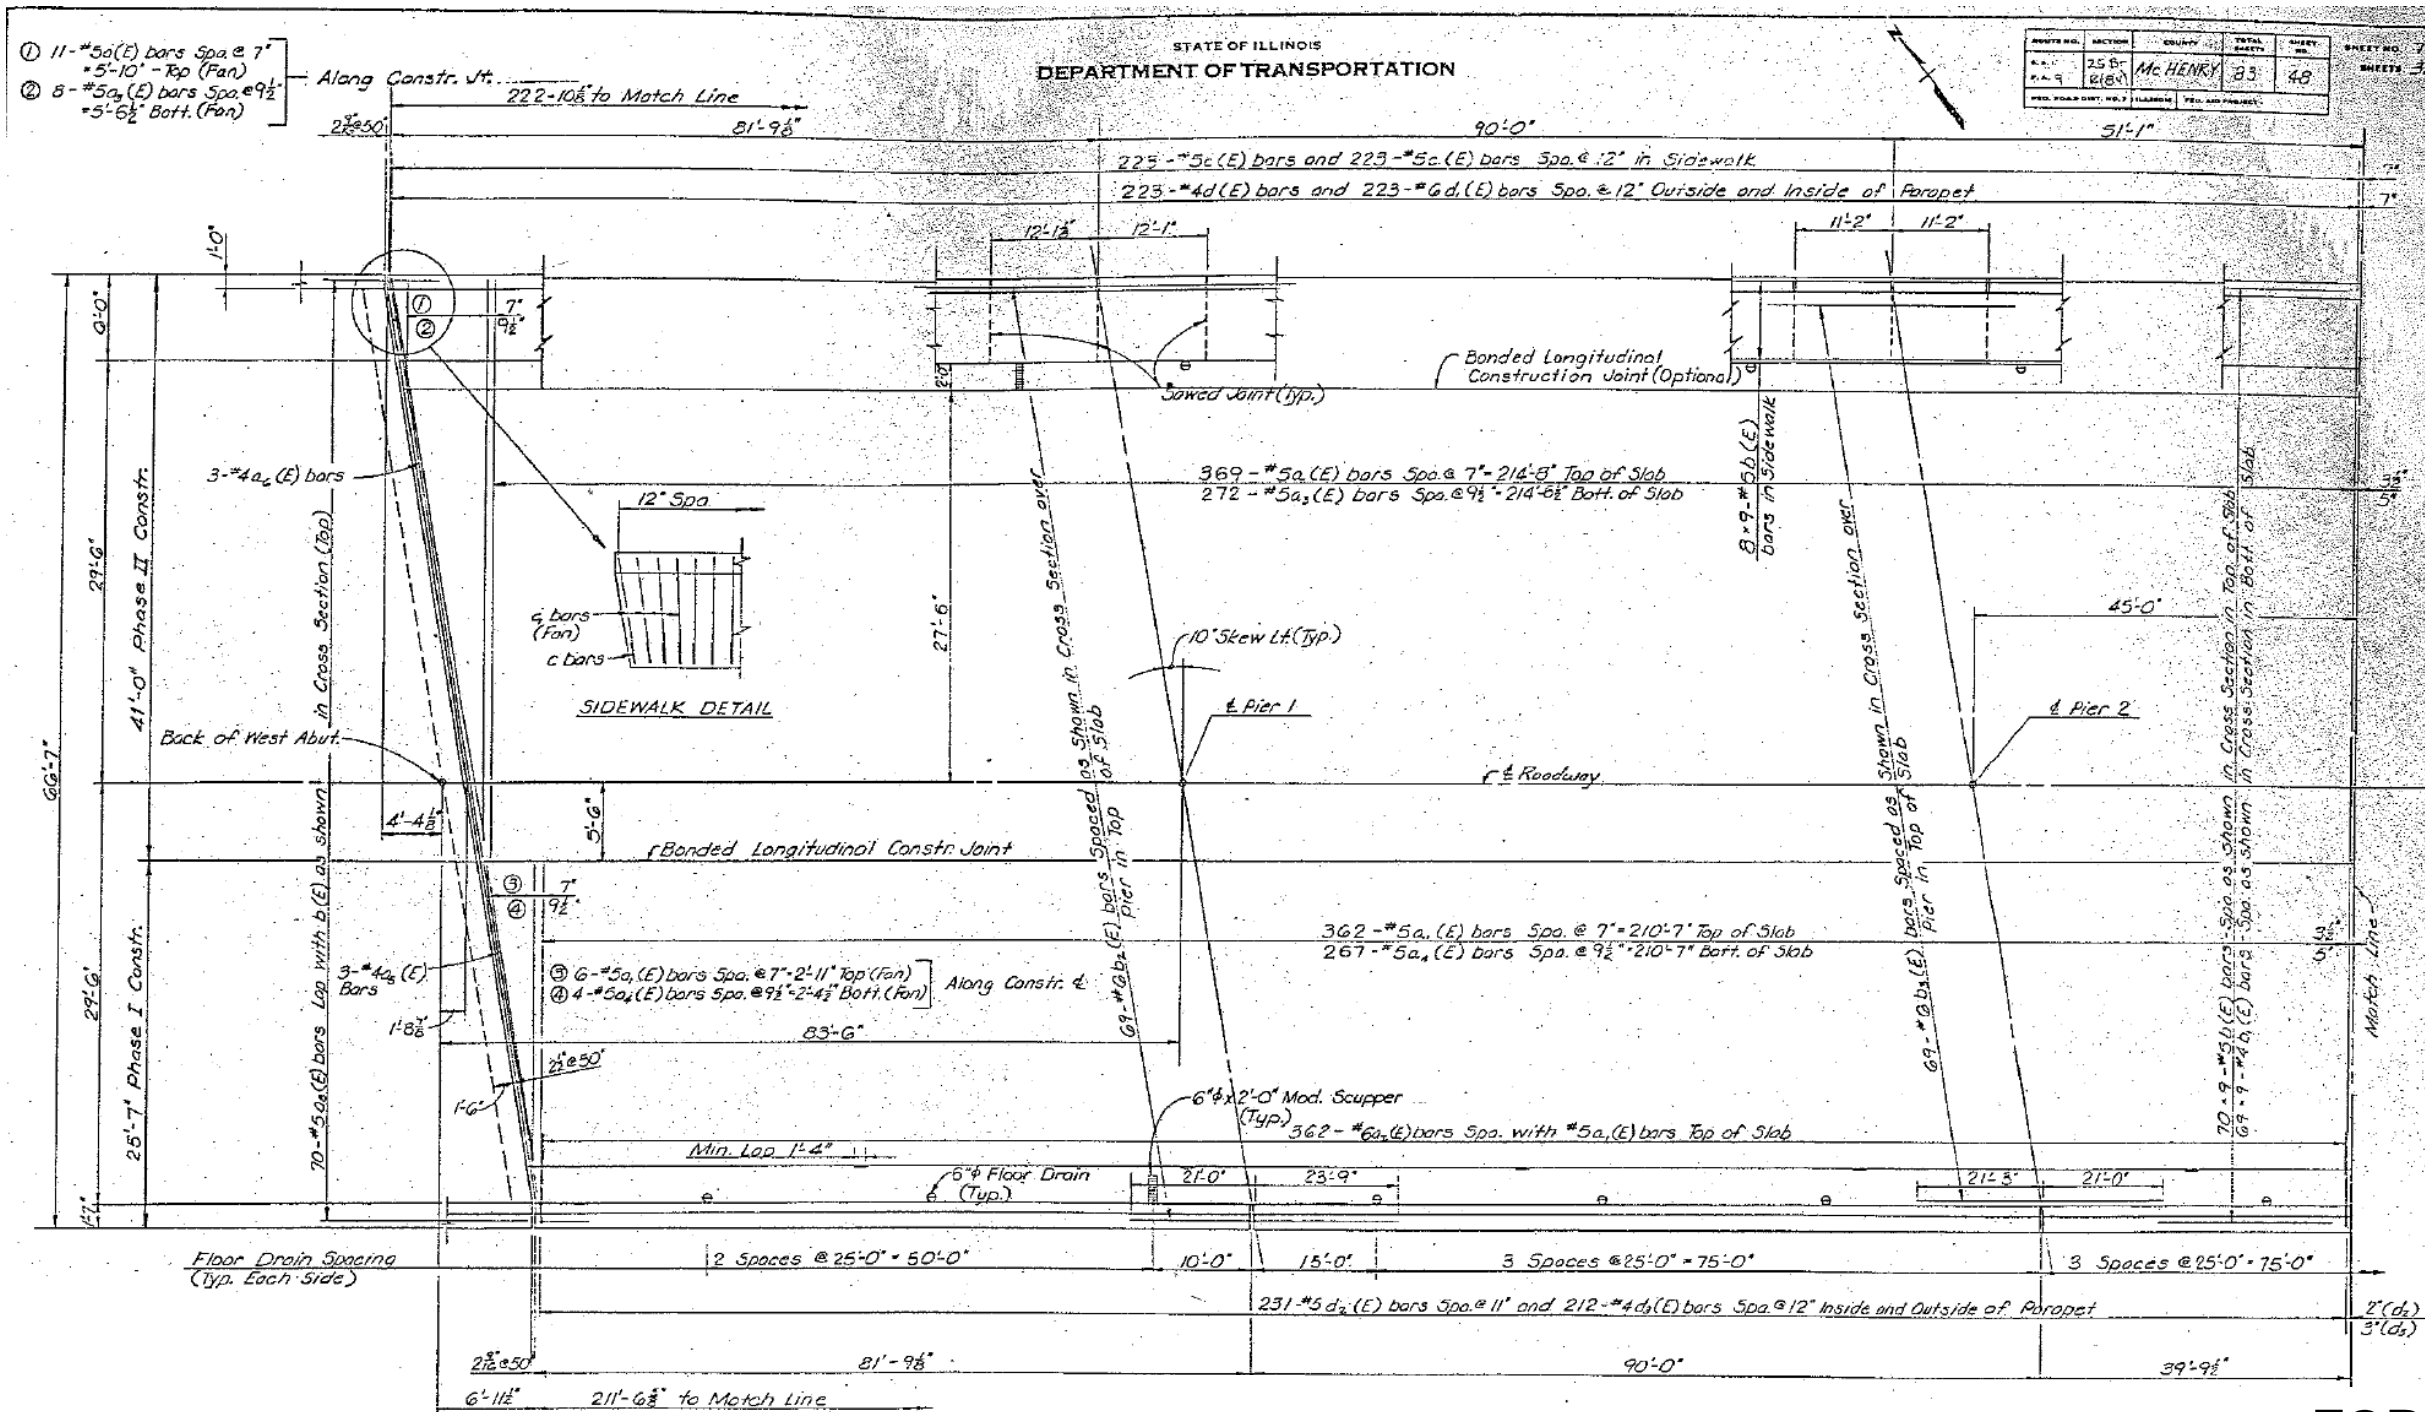 ① 11-#5a(E) bars Spa. @ 7"
= 5'-10" - Top (Fan)
② 8-#5a₃(E) bars Spa. @ 9½"
= 5'-6½" Bott. (Fan)
Along Constr. Jt.
STATE OF ILLINOIS
DEPARTMENT OF TRANSPORTATION
ROUTE NO. SECTION COUNTY TOTAL SHEETS SHEET NO.
McHENRY 83 48
SHEET NO. 7
SHEETS
222'-10⅝" to Match Line
81'-9⅛"
90'-0"
51'-1"
223-#5c(E) bars and 223-#5c(E) bars Spa. @ 12" in Sidewalk
223-#4d(E) bars and 223-#6d₁(E) bars Spa. @ 12" Outside and Inside of Parapet
7"
12'-1½"
12'-1"
11'-2"
11'-2"
1'-0"
① 7"
② 9½"
2'-0"
Bonded Longitudinal
Construction Joint (Optional)
Sawed Joint (Typ.)
3-#4a₆(E) bars
369-#5a(E) bars Spa. @ 7" = 214'-8" Top of Slab
272-#5a₃(E) bars Spa. @ 9½" = 214'-6½" Bott. of Slab
3½"
5"
8×9-#5b(E)
bars in Sidewalk
12" Spa.
c₁ bars
(Fan)
c bars
SIDEWALK DETAIL
66'-7"
29'-6"
41'-0" Phase II Constr.
27'-6"
45'-0"
10° Skew Lt. (Typ.)
℄ Pier 1
℄ Pier 2
Back of West Abut.
℄ Roadway
4'-4⅛"
5'-6"
Bonded Longitudinal Constr. Joint
③ 7"
④ 9½"
70-#5a₈(E) bars Lap with b(E) as shown in Cross Section (Top)
69-#6b₂(E) bars Spaced as Shown in Cross Section over
Pier in Top of Slab
69-#6b₃(E) bars Spaced as Shown in Cross Section over
Pier in Top of Slab
70×9-#5b(E) bars - Spa. as shown in Cross Section in Top of Slab
69×9-#4b₁(E) bars - Spa. as shown in Cross Section in Bott. of Slab
362-#5a₁(E) bars Spa. @ 7" = 210'-7" Top of Slab
267-#5a₄(E) bars Spa. @ 9½" = 210'-7" Bott. of Slab
3½"
5"
Match Line
29'-6"
25'-7" Phase I Constr.
3-#4a₅(E)
Bars
③ 6-#5a₁(E) bars Spa. @ 7" = 2'-11" Top (Fan)
④ 4-#5a₄(E) bars Spa. @ 9½" = 2'-4½" Bott. (Fan)
Along Constr. ℄
1'-8⅞"
83'-6"
2½" @ 50°
1'-6"
6"φ x 2'-0" Mod. Scupper
(Typ.)
362-#6a₂(E) bars Spa. with #5a₁(E) bars Top of Slab
Min. Lap 1'-4"
6"φ Floor Drain
(Typ.)
21'-0"
23'-9"
21'-3"
21'-0"
1'-7"
Floor Drain Spacing
(Typ. Each Side)
2 Spaces @ 25'-0" = 50'-0"
10'-0"
15'-0"
3 Spaces @ 25'-0" = 75'-0"
3 Spaces @ 25'-0" = 75'-0"
231-#5d₂(E) bars Spa. @ 11" and 212-#4d₃(E) bars Spa. @ 12" Inside and Outside of Parapet
2"(d₂)
3"(d₃)
81'-9⅛"
90'-0"
39'-9½"
6'-11½"
211'-6⅝" to Match Line